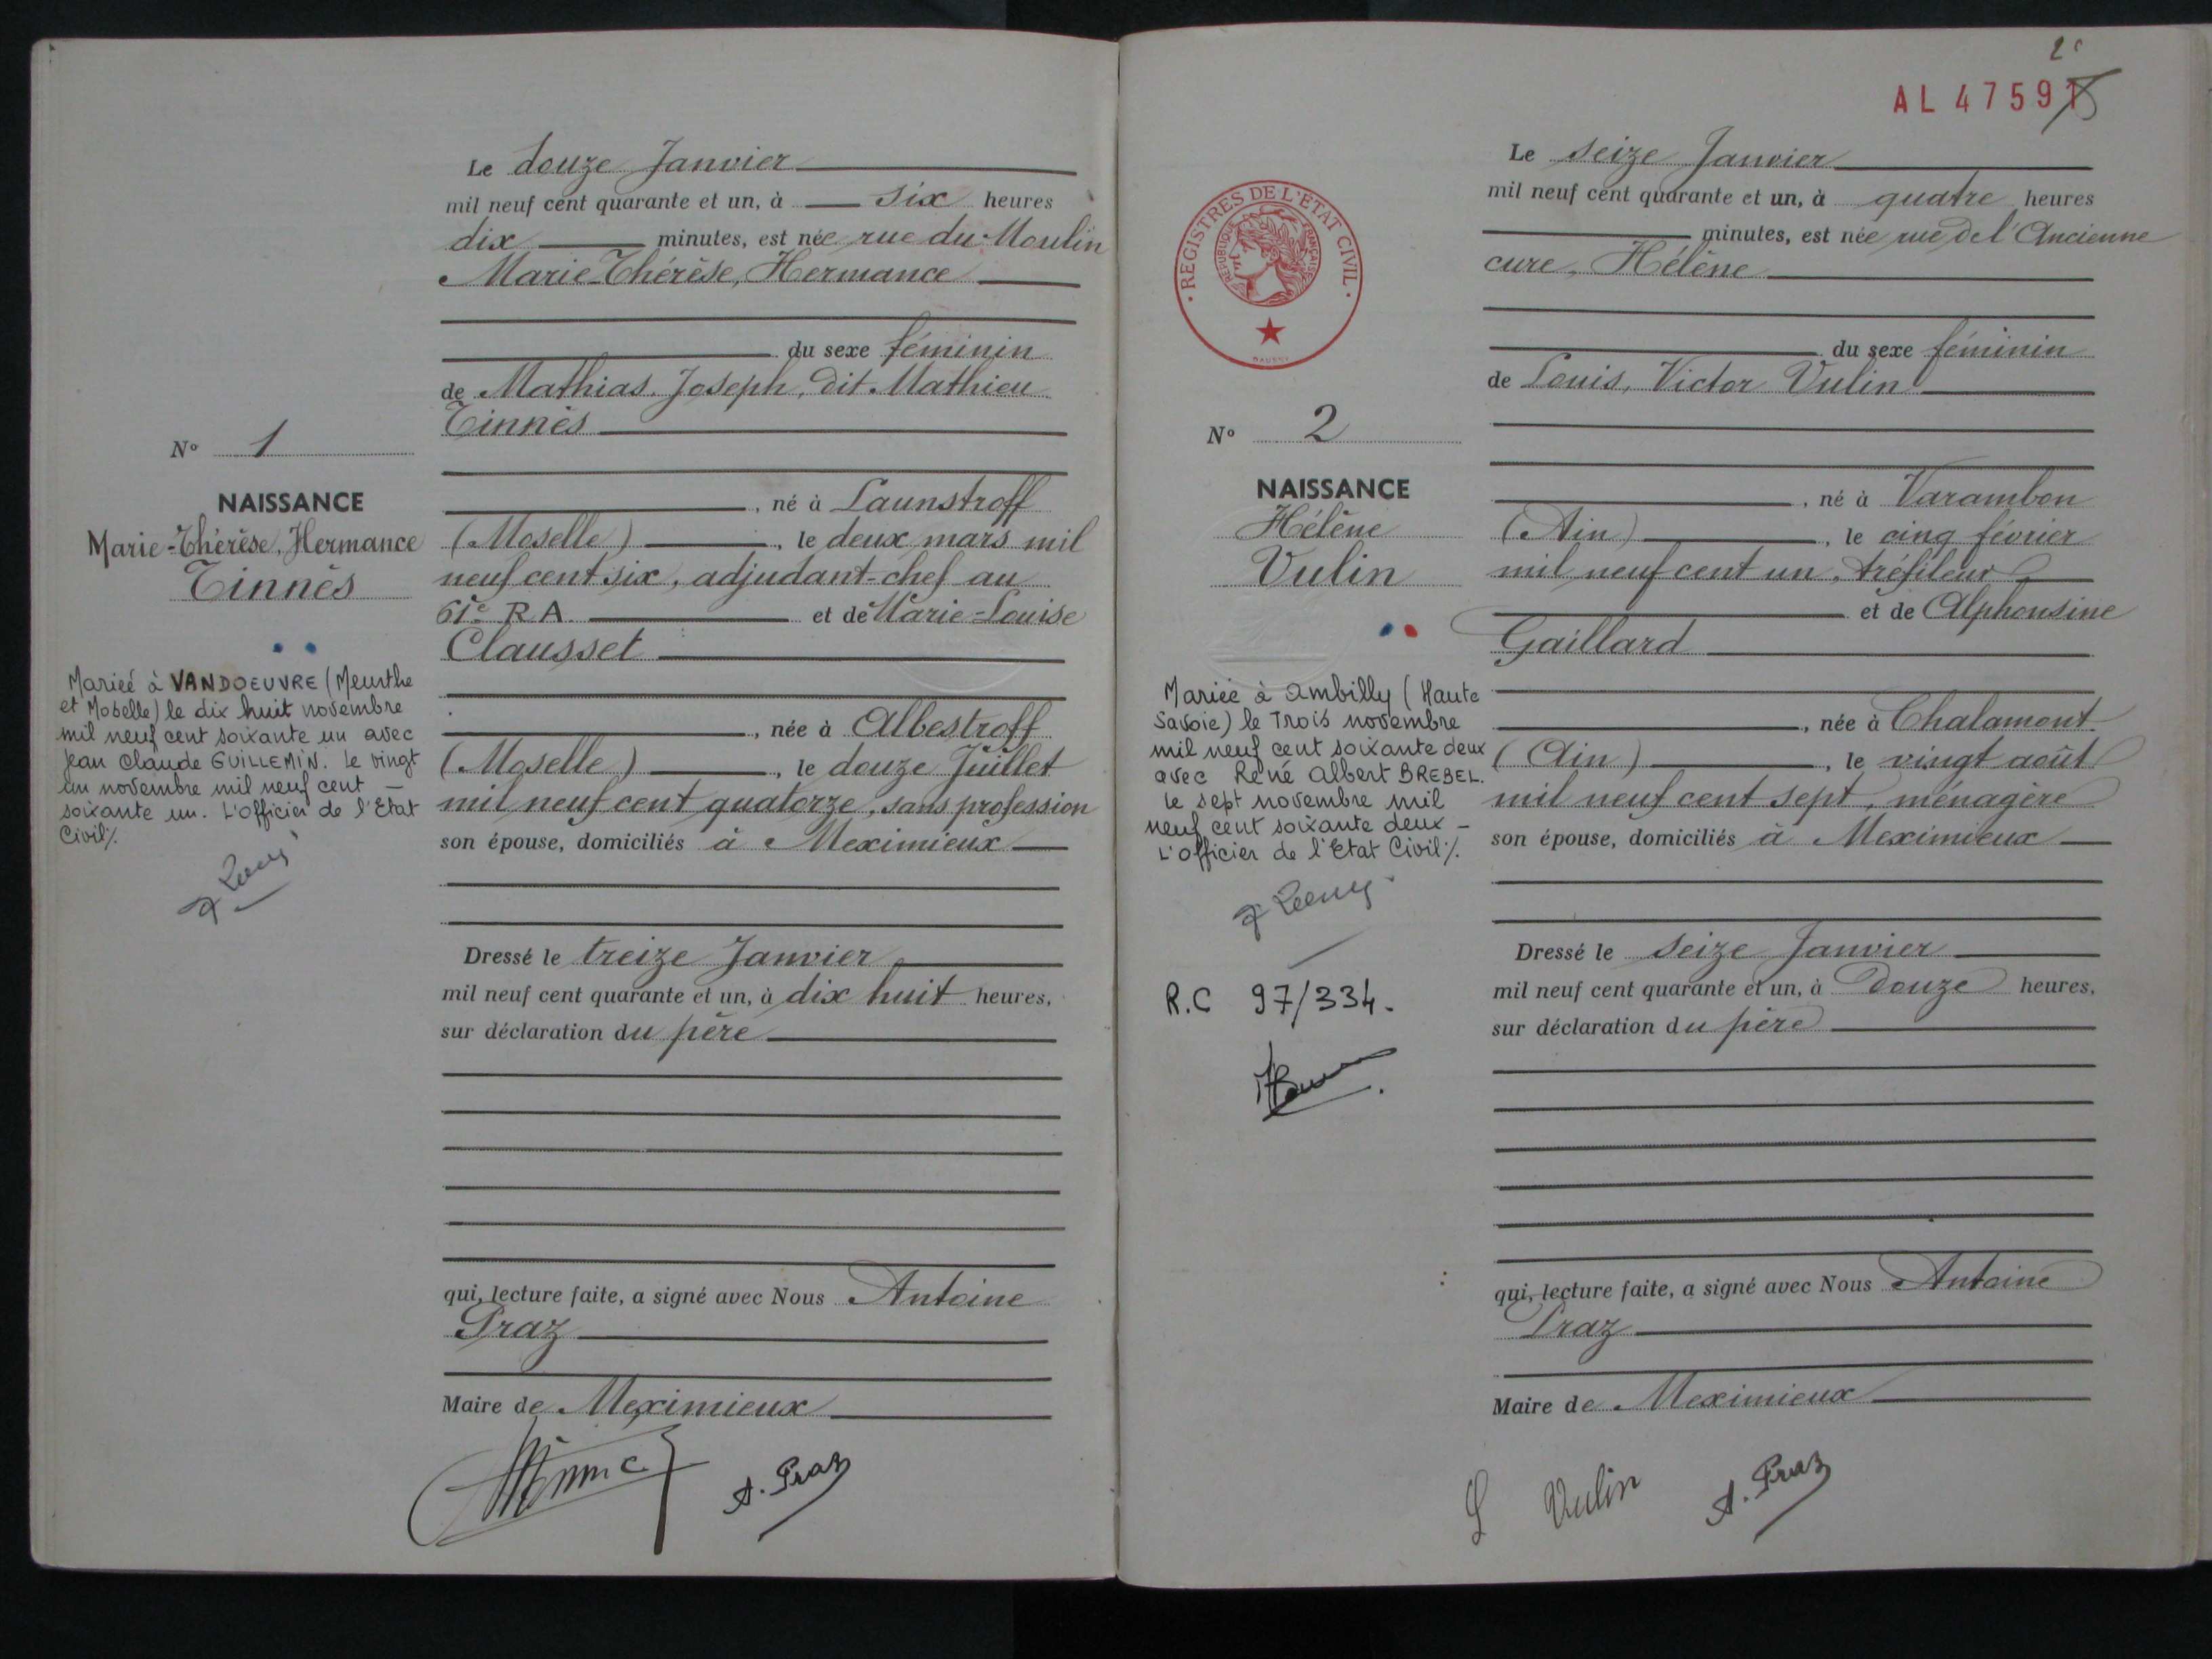 Le douze Janvier
mil neuf cent quarante et un, à six heures
dix minutes, est née rue du Moulin
Marie-Thérèse, Hermance
du sexe féminin
de Mathias, Joseph, dit Mathieu
Tinnès
, né à Launstroff
(Moselle) , le deux mars mil
neuf cent six, adjudant-chef au
61e R A et de Marie-Louise
Clausset
, née à Albestroff
(Moselle) , le douze Juillet
mil neuf cent quatorze, sans profession
son épouse, domiciliés à Meximieux
Dressé le treize Janvier
mil neuf cent quarante et un, à dix huit heures,
sur déclaration du père
qui, lecture faite, a signé avec Nous Antoine
Praz
Maire de Meximieux
A. Praz
N° 1
NAISSANCE
Marie-Thérèse, Hermance
Tinnès
Mariée à VANDOEUVRE (Meurthe
et Moselle) le dix huit novembre
mil neuf cent soixante un avec
Jean Claude GUILLEMIN. Le vingt
un novembre mil neuf cent
soixante un. L'Officier de l'Etat
Civil%.
2
AL 4759
REGISTRES DE L'ETAT CIVIL
REPUBLIQUE FRANÇAISE
Le seize Janvier
mil neuf cent quarante et un, à quatre heures
minutes, est née rue de l'Ancienne
cure, Hélène
du sexe féminin
de Louis, Victor Vulin
, né à Varambon
(Ain) , le cinq février
mil neuf cent un, tréfileur
et de Alphonsine
Gaillard
, née à Chalamont
(Ain) , le vingt août
mil neuf cent sept, ménagère
son épouse, domiciliés à Meximieux
Dressé le seize Janvier
mil neuf cent quarante et un, à Douze heures,
sur déclaration du père
qui, lecture faite, a signé avec Nous Antoine
Praz
Maire de Meximieux
L Vulin
A. Praz
N° 2
NAISSANCE
Hélène
Vulin
Mariée à Ambilly (Haute
Savoie) le Trois novembre
mil neuf cent soixante deux
avec René Albert BREBEL.
Le sept novembre mil
neuf cent soixante deux -
L'Officier de l'Etat Civil%.
R.C 97/334.